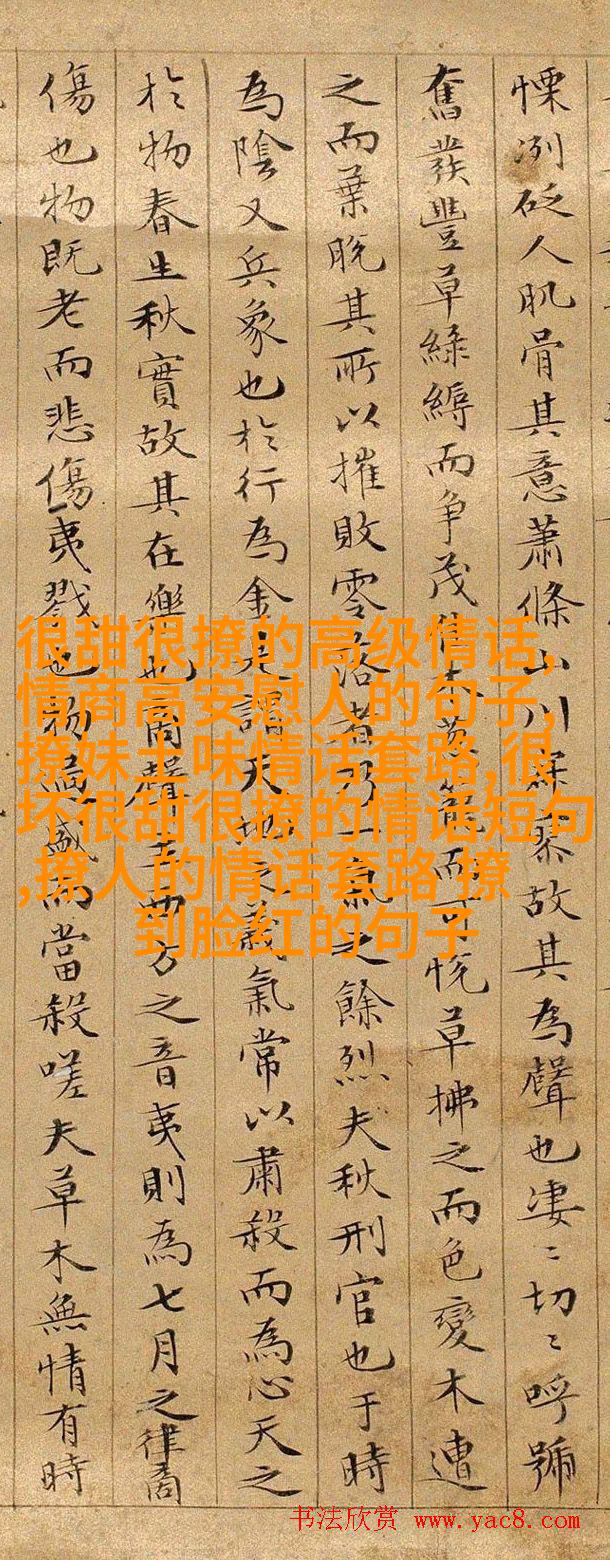 慄冽砭人肌骨其意蕭條山川寂寥故其為聲也淒〻切〻呼號
奮發豐草綠縟而争茂佳木葱籠而可悅草拂之而色變木遭
之而葉脫其所以摧敗零落者乃一氣之餘烈夫秋刑官也于時
為陰又兵象也扵行為金是謂天地之義氣常以肅殺而為心天之
扵物春生秋實故其在樂也商聲主西方之音夷則為七月之律商
傷也物既老而悲傷夷戮也物過盛而當殺嗟夫草木無情有時
很甜很撩的高级情话,
情商高安慰人的句子,
撩妹土味情话套路,很
坏很甜很撩的情话短句
,撩人的情话套路 撩
到脸红的句子
书法欣赏 www.yac8.com